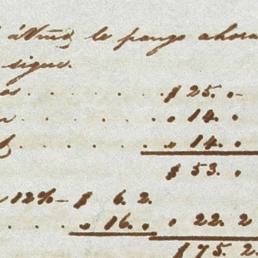 le pongo ahora
sigue.
$ 25. "
" 14. "
" 14. "
$ 53. "
12% – $ 6. 2.
" 16. " " 22. 2
$ 75. 2.